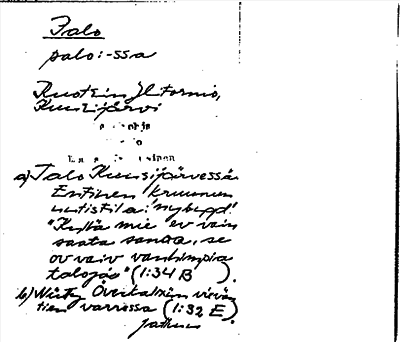 Palo
palo: -ssa
Ruotsin Ylitornio,
Kuusijärvi
a) Talo Kuusijärvessä.
Entinen kruunun
uutistila: "nybygd".
"Kyllä mie ev vain
saata sanoa, se
ov vaiv vanhimpia
talojas" (1:34 B ).
b) Niitty Överkalixin
tien varressa (1:32 E ).